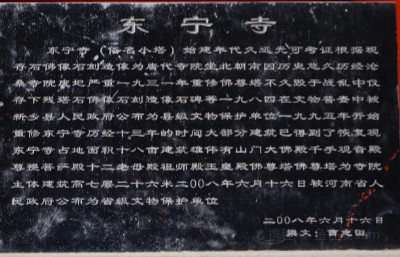 东宁寺
东宁寺（俗名小塔）始建年代久远无可考证根据现
存石佛像石刻造像为唐代寺院坐北朝南因历史悠久历经沧
桑寺院废圮严重一九三一年重修佛尊塔不久毁于战乱中仅
存下残塔石佛像石刻造像石碑等一九八四在文物普查中被
新乡县人民政府公布为县级文物保护单位一九九五年开始
重修东宁寺历经十三年的时间大部分建筑已得到了恢复现
东宁寺占地面积十八亩建筑雄伟有山门大佛殿千手观音殿
尊提菩萨殿十二老母殿祖师殿玉皇殿佛尊塔佛尊塔为寺院
主体建筑高七层二十六米二00八年六月十六日被河南省人
民政府公布为省级文物保护单位
二00八年六月十六日
撰文：曹